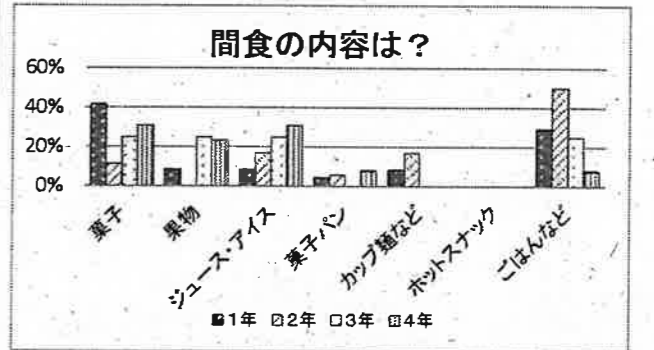 間食の内容は？
60%
40%
20%
0%
菓子
果物
ジュース・アイス
菓子パン
カップ麺など
ホットスナック
ごはんなど
1年 2年 3年 4年